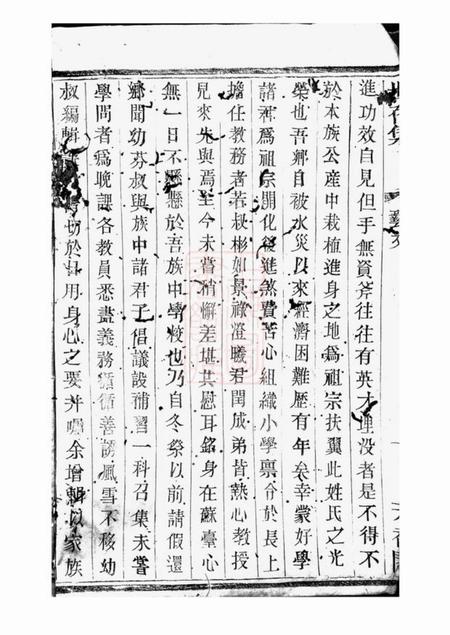 進功效自見但手無資斧往往有英才埋没者是不得不
於本族公産中栽植進身之地為祖宗扶翼此姓氏之光
榮也吾鄉自被水災以來經濟困難歷有年矣幸蒙好學
諸君爲祖宗開化後進煞費苦心組織小學稟命於長上
擔任教務者若叔彬如景祿澄曦君閏成弟皆熱心教授
兄來先與焉至今未嘗稍懈差堪共慰耳銘身在蘇臺心
無一日不懸懸於吾族中學校也乃自冬祭以前請假還
鄉聞幼芬叔與族中諸君子倡議設補習一科召集未嘗
學問者爲晚課各教員悉盡義務循循善誘風雪不移幼
叔編輯切於日用身心之要并囑余增輯以家族